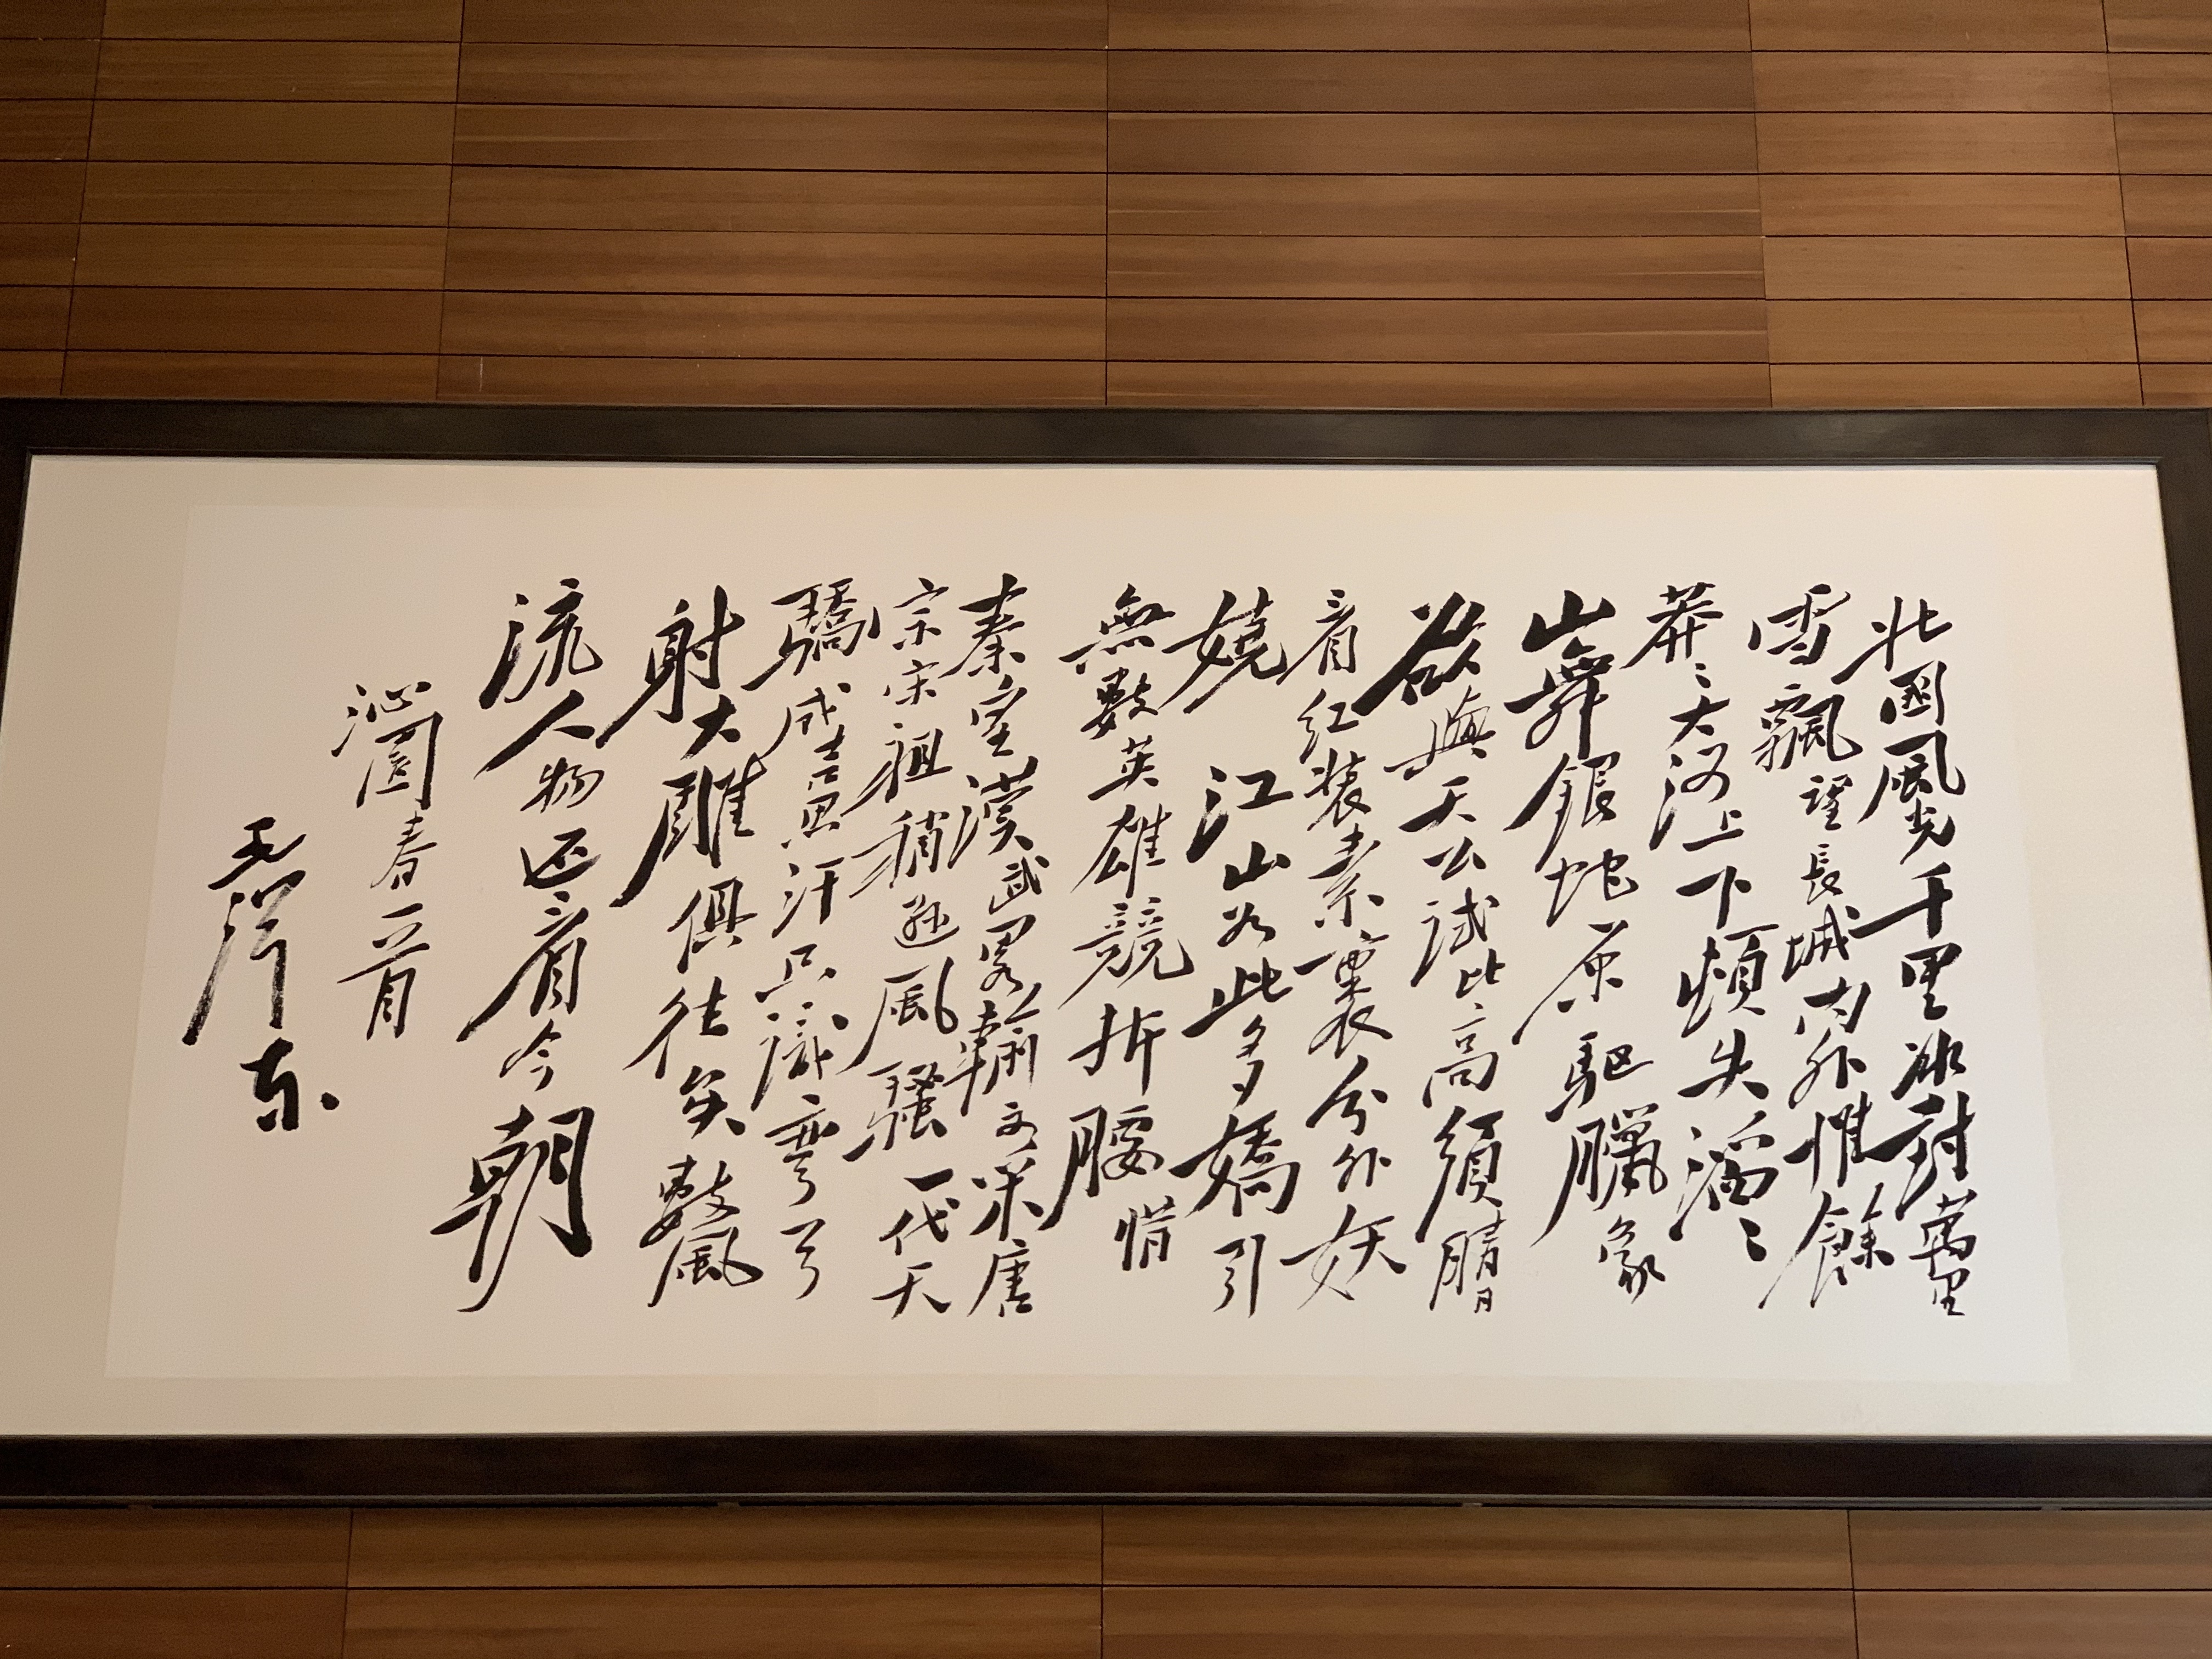 北國風光千里冰封萬里
雪飄望長城內外惟餘
莽〻大河上下頓失滔〻
山舞銀蛇原驅臘象
欲與天公試比高須晴日
看红装素裹分外妖
嬈江山如此多嬌引
無數英雄競折腰惜
秦皇漢武畧輸文采唐
宗宋祖稍遜風騷一代天
驕成吉思汗只識彎弓
射大雕俱往矣數風
流人物还看今朝
沁園春一首
毛澤东